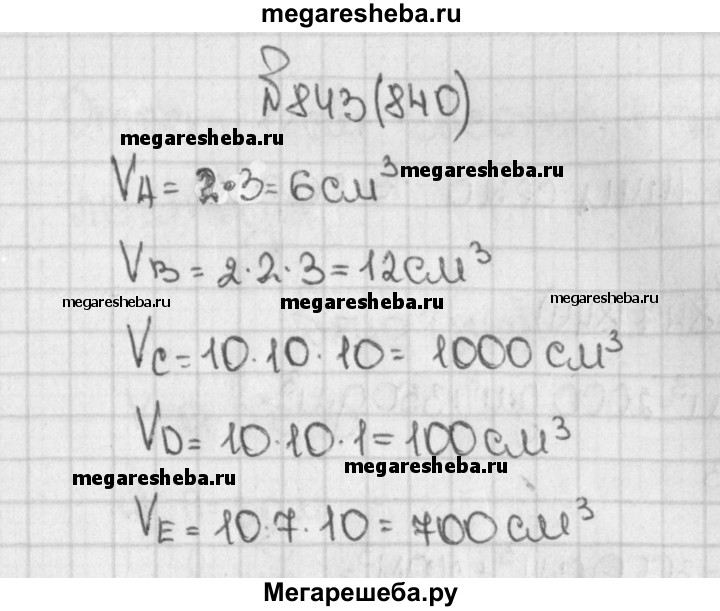 megaresheba.ru
№843(840)
megaresheba.ru
V_A = 2·3 = 6 см³ megaresheba.ru
V_B = 2·2·3 = 12 см³
megaresheba.ru megaresheba.ru megaresheba.ru
V_C = 10·10·10 = 1000 см³
V_D = 10·10·1 = 100 см³
megaresheba.ru megaresheba.ru
V_E = 10·7·10 = 700 см³
Мегарешеба.ру